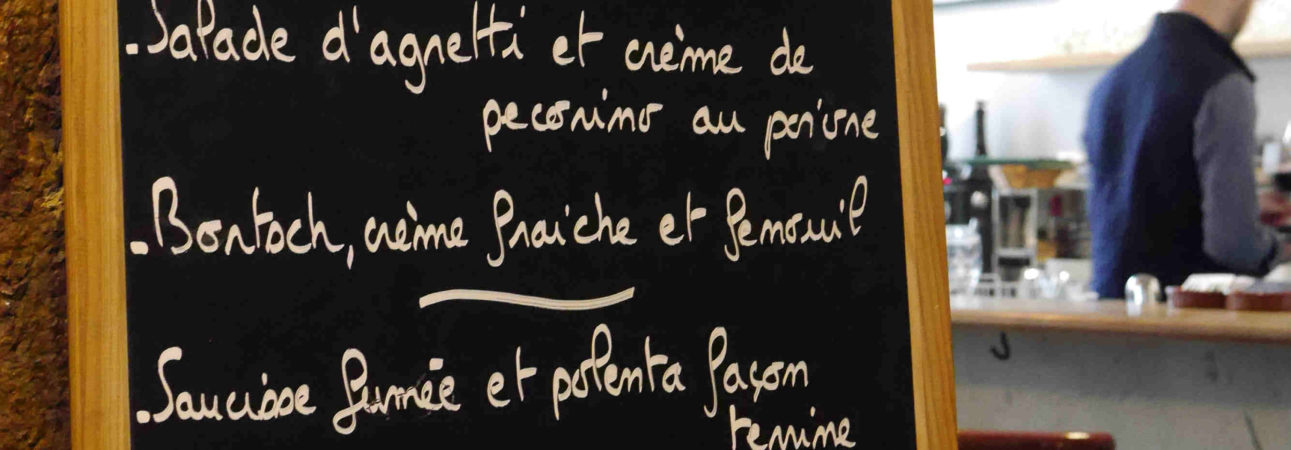 .Salade d'agnetti et crème de
pecorino au poivre
.Bortsch, crème fraiche et fenouil
.Saucisse fumée et polenta façon
terrine